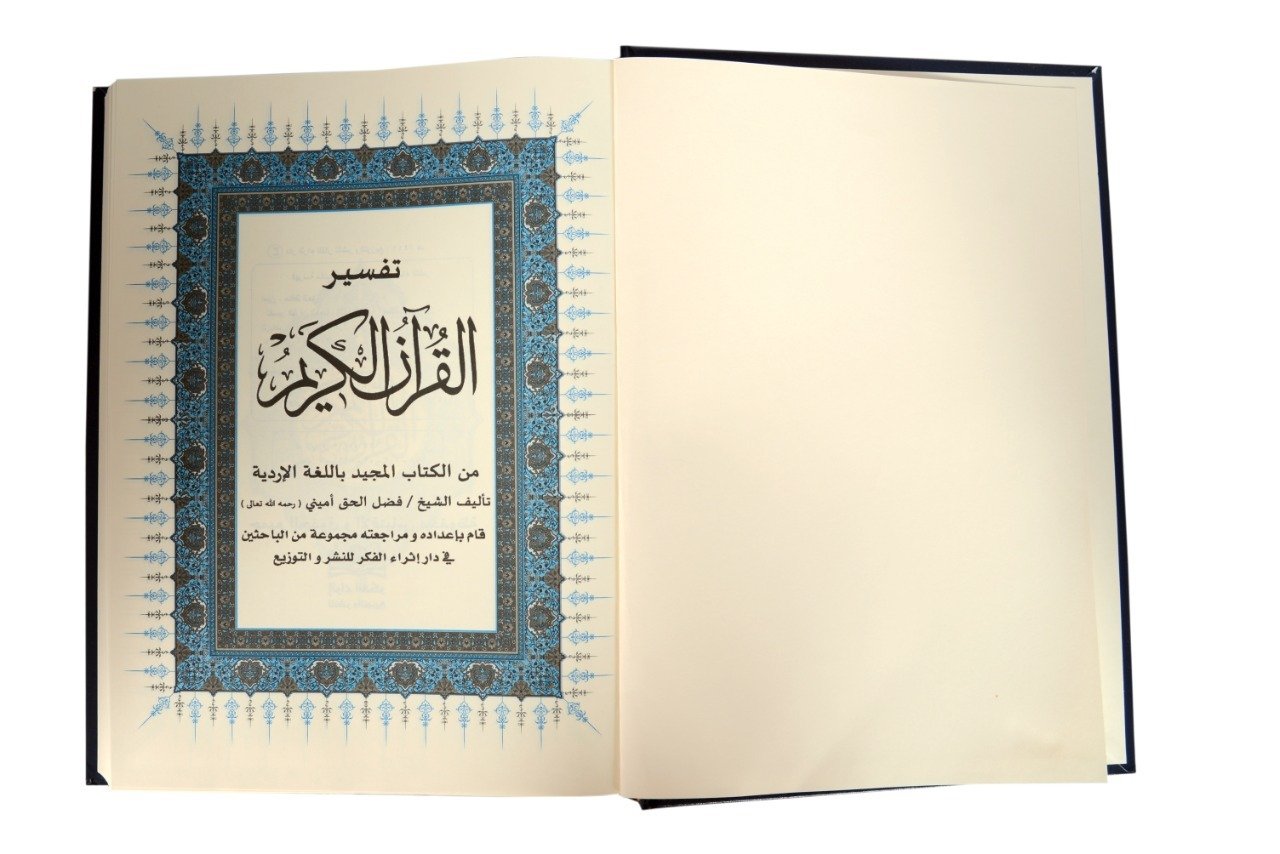 تفسير
القرآن الكريم
من الكتاب المجيد باللغة الإردية
تأليف الشيخ / فضل الحق أميني ( رحمه الله تعالى )
قام بإعداده و مراجعته مجموعة من الباحثين
في دار إثراء الفكر للنشر و التوزيع